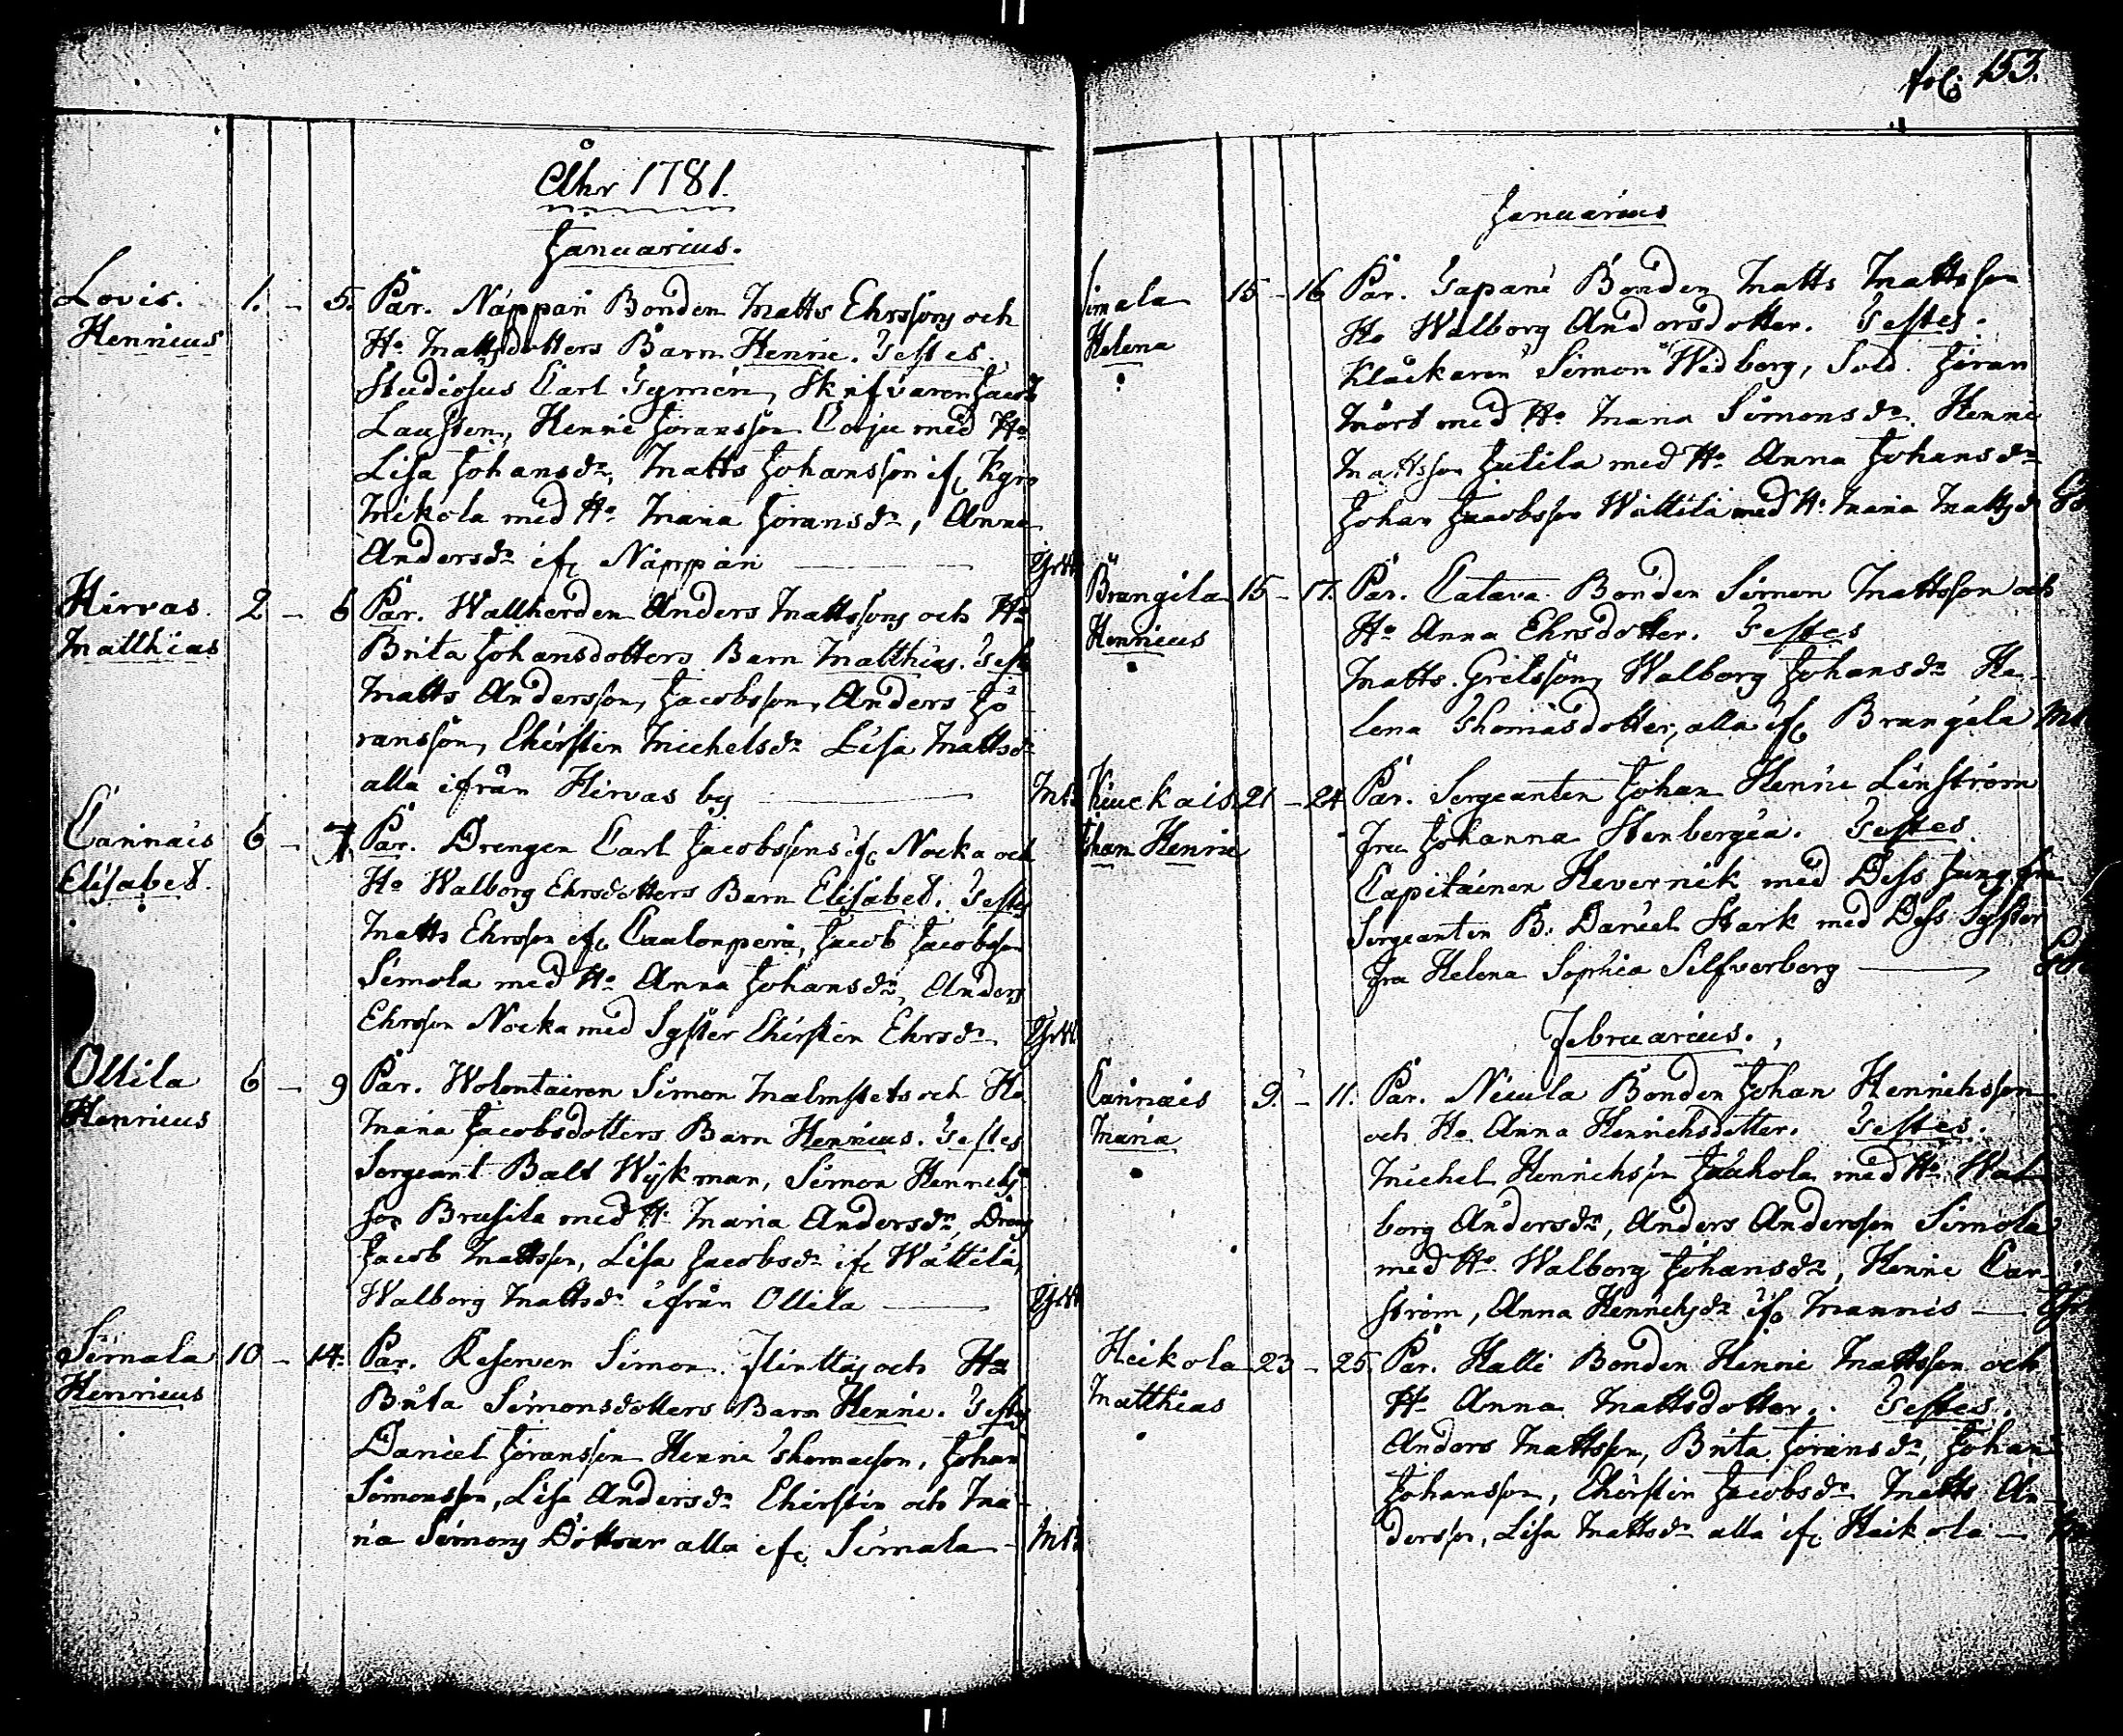 Åhr 1781.
Januarius.
Lovis. 1. – 5. Par. Näppäri Bonden Matts Ehrssons och
Henricus Hu Mattsdotters Barn Henric. Testes.
Studiosus Carl Gymén, Skrifvaren Jacob
Henric Jöransson Carju med Hu
Lisa Johansdr, Matts Johansson if
Mikola med Hu Maria Jöransdr, Anna
Andersdr if. Näppäri
Hirvas. 2 – 6 Par. Wallherden Anders Mattssons och Hu
Matthias Brita Johansdotters Barn Matthias. Test
Matts Andersson, Jacobsson, Anders Jö
ransson, Chirstin Michelsdr Lisa Mattsdr
alla ifrån Hirvas by
Cannais 6 – 7. Par. Drengen Carl Jacobssons if. Nocka och
Elisabet. Hu Walborg Ehrsdotters Barn Elisabet. Testes
Matts Ehrsson if. Jacob Jacobsson
Simola med Hu Anna Johansdr, Anders
Ehrsson Nocka med Syster Chirstin Ehrsdr
Ollila 6 – 9 Par. Wolontairen Simon Malmstets och Hu
Henricus Maria Jacobsdotters Barn Henricus. Testes
Sergeant Balt Wykman, Simon Henrichs
son Brusila med Hu Maria Andersdr, Dreng
Jacob Mattsson, Lisa Jacobsdr if. Wättilä,
Walborg Mattsdr ifrån Ollila
Simala 10 – 14. Par. Reserven Simon Flinttas och Hu
Henricus Brita Simonsdotters Barn Henric. Testes
Daniel Jöransson Henric Thomasson, Johan
Simonsson, Lisa Andersdr Chirstin och Ma
ria Simons Döttrar alla if. Simala
fol: 153.
Januarius
Simala 15 – 16 Par. Tapani Bonden Matts Mattsson
Helena Hu Walborg Andersdotter. Testes.
Klåckaren Simon Widborg, Sold. Jöran
Mört med Hu Maria Simonsdr. Henric
Mattsson Jutila med Hu Anna Johansdr
Johan Jacobsson Wättilä med Hu Maria Mattsdr
Brangila 15 – 17. Par. Catava Bonden Simon Mattsson och
Henricus Hu Anna Ehrsdotter. Testes
Matts Grelsson, Walborg Johansdr He-
lena Thomasdotter, alla if. Brangila
Kiuckais 21 – 24 Par. Sergeanten Johan Henric Linström
Johan Henric Fru Johanna Stenbergia. Testes.
Capitainen Hevernik med Dess Jungfru
Sergeanten B. Daniel Stark med Dess Syster
Fru Helena Sophia Silfverberg
Februarius.
Cannais 9. – 11. Par. Niuula Bonden Johan Henrichsson
Maria och Hu Anna Henrichsdotter. Testes.
Michel Henrichsson Jaakola med Hu Wal
borg Andersdr, Anders Andersson Simola
med Hu Walborg Johansdr, Henric Car-
ström, Anna Henrichsdr if. Mannis
Heikola 23 – 25. Par. Halli Bonden Henric Mattsson och
Matthias Hu Anna Mattsdotter. Testes.
Anders Mattsson, Brita Jöransdr, Johan
Johansson, Chirstin Jacobsdr Matts An-
dersson, Lisa Mattsdr alla if. Heikola